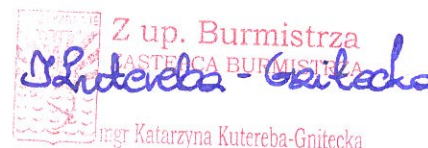 Z up. Burmistrza
ZASTĘPCA BURMISTRZA
K Kutereba - Gnitecka
mgr Katarzyna Kutereba-Gnitecka